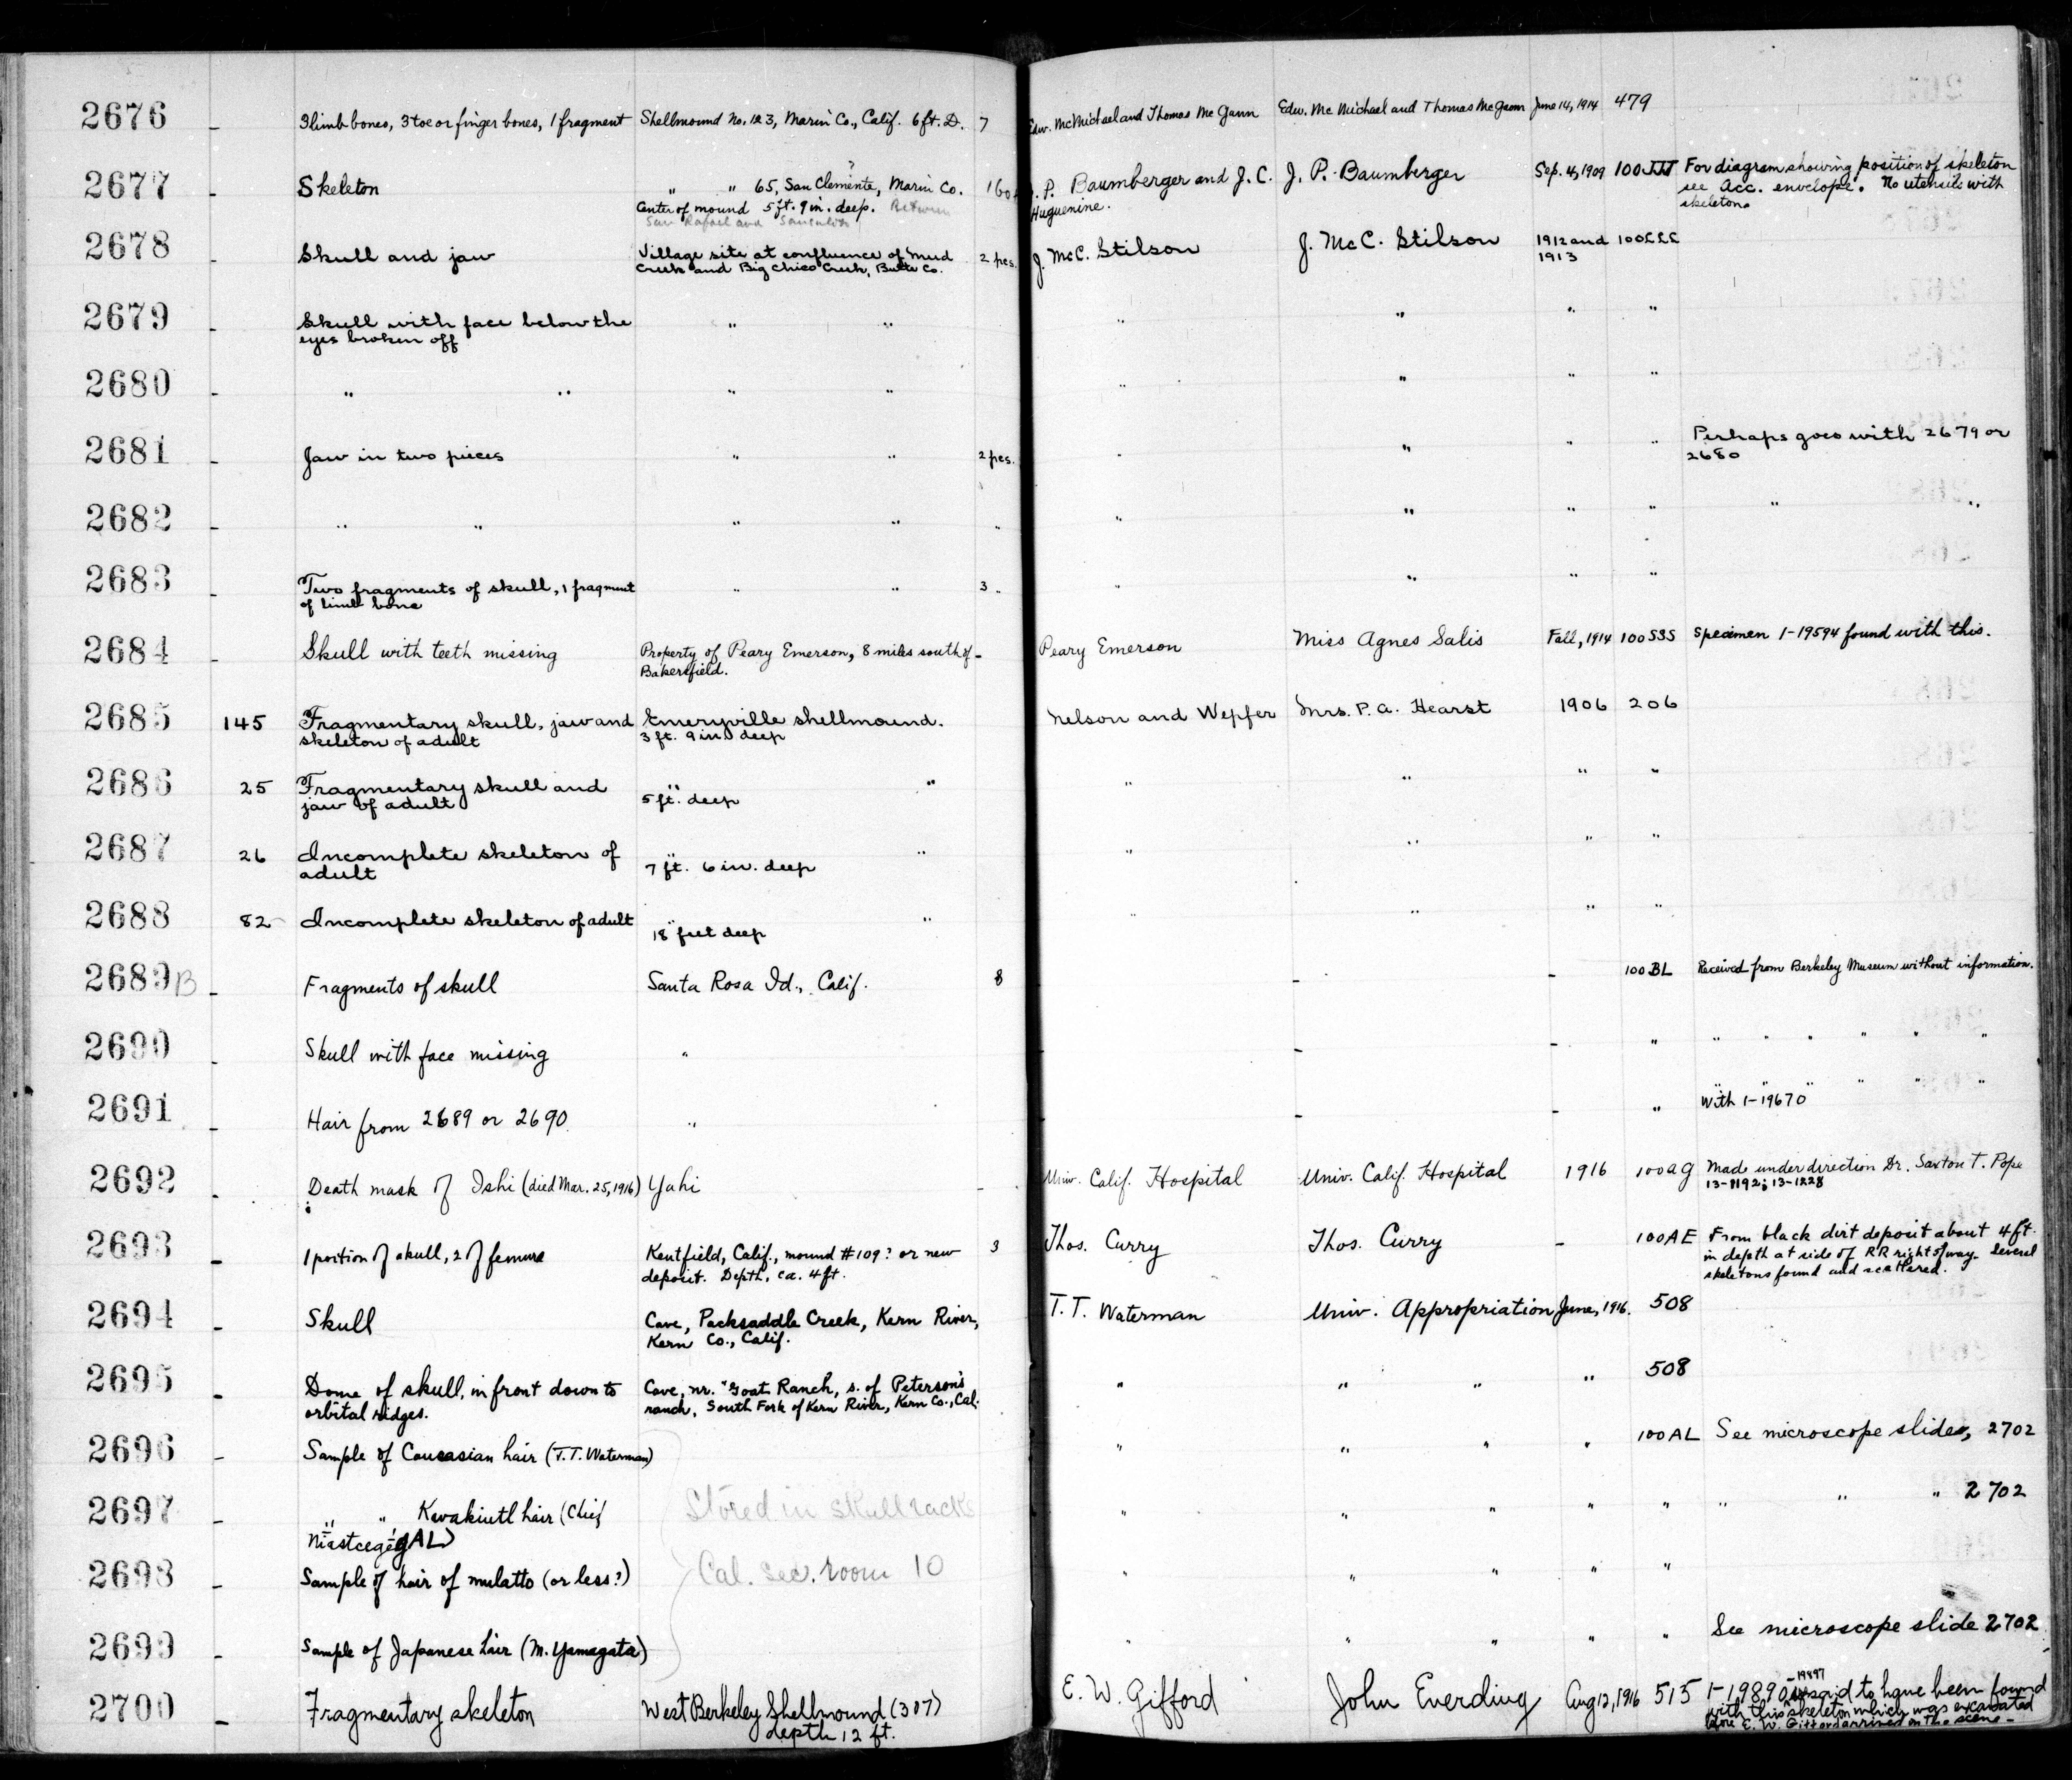 2676 - 3 limb bones, 3 toe or finger bones, 1 fragment Shellmound No. 123, Marin Co., Calif. 6 ft. D. 7 Edw. McMichael and Thomas McGann Edw. McMichael and Thomas McGann June 14, 1914 479
2677 - Skeleton " " 65, San Clemente, Marin Co. ? J. P. Baumberger and J. C. J. P. Baumberger Sep. 4, 1909 100JJJ For diagram showing position of skeleton
Center of mound 5 ft. 9 in. deep. Between Huguenine. see Acc. envelope. No utensils with
San Rafael and Sausalito skeleton.
2678 - Skull and jaw Village site at confluence of Mud 2 pcs. J. McC. Stilson J. McC. Stilson 1912 and 100LLL
Creek and Big Chico Creek, Butte Co. 1913
2679 - Skull with face below the " " " " " "
eyes broken off
2680 - " " " " " " " "
2681 - Jaw in two pieces " " 2 pcs. " " " " Perhaps goes with 2679 or
2680
2682 - " " " " " " " " " " "
2683 - Two fragments of skull, 1 fragment " " 3 - " " " "
of limb bone
2684 - Skull with teeth missing Property of Peary Emerson, 8 miles south of - Peary Emerson Miss Agnes Salis Fall, 1914 100SSS Specimen 1-19594 found with this.
Bakersfield.
2685 145 Fragmentary skull, jaw and Emeryville shellmound. Nelson and Wepfer Mrs. P. A. Hearst 1906 206
skeleton of adult 3 ft. 9 in. deep
2686 25 Fragmentary skull and " " " " " "
jaw of adult 5 ft. deep
2687 26 Incomplete skeleton of " " " " " "
adult 7 ft. 6 in. deep
2688 82 Incomplete skeleton of adult " " " " " "
18 feet deep
2689B - Fragments of skull Santa Rosa Id., Calif. 8 - - 100BL Received from Berkeley Museum without information.
2690 - Skull with face missing " - - " " " " " " "
2691 - Hair from 2689 or 2690 " - - " " " " " " "
With 1-19670
2692 - Death mask of Ishi (died Mar. 25, 1916) Yahi - Univ. Calif. Hospital Univ. Calif. Hospital 1916 100AG Made under direction Dr. Saxton T. Pope
13-1192; 13-1228
2693 - 1 portion of skull, 2 of femurs Kentfield, Calif., mound #109? or new 3 Thos. Curry Thos. Curry - 100AE From black dirt deposit about 4 ft.
deposit. Depth, ca. 4 ft. in depth at side of RR right of way. Several
skeletons found and scattered.
2694 - Skull Cave, Packsaddle Creek, Kern River, T. T. Waterman Univ. Appropriation June, 1916. 508
Kern Co., Calif.
2695 - Dome of skull, in front down to Cave, nr. "Goat Ranch, s. of Peterson's " " " " 508
orbital ridges. ranch, South Fork of Kern River, Kern Co., Cal.
2696 - Sample of Caucasian hair (T.T. Waterman) " " " " 100AL See microscope slides, 2702
2697 - " " Kwakiutl hair (Chief Stored in skull racks " " " " " " " " 2702
2698 - Sample of hair of mulatto (or less?) Cal. sec. room 10 " " " " "
2699 - Sample of Japanese hair (M. Yamagata) " " " " " See microscope slide 2702
2700 - Fragmentary skeleton West Berkeley Shellmound (307) E. W. Gifford John Everding Aug 12, 1916 515 1-19890 -19897 said to have been found
depth 12 ft. with this skeleton which was excavated
before E. W. Gifford arrived on the scene -